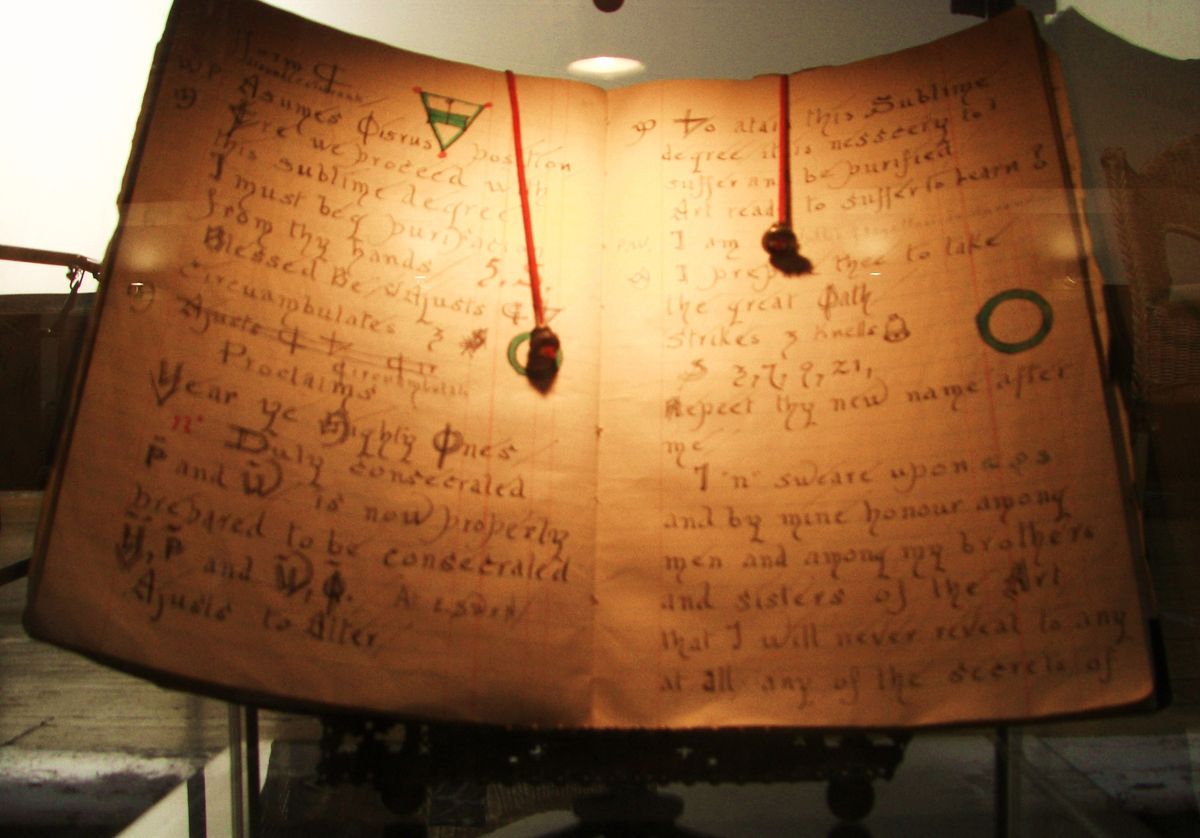 Form
W P.
Asumes Osrus position
Erel we proceed with
this sublime degree
I must beg purifaction
from thy hands S, S,
Blessed Be
circuambulates 3
Ajusts
circumambulate
Proclaims
Hear ye Mighty Ones
n. Duly consecrated
P and W is now property
prepared to be consecrated
H, P and W, O. A
Ajusts to Alter,
To atain this Sublime
degree it is nessecry to
suffer and be purified
Art ready to suffer to Learn ?
I am
I prepare thee to take
the great Oath
strikes 3 Knells
3, 7, 9, 21,
Repeet thy new name after
me
I "n" sweare upon
and by mine honour among
men and among my brothers
and sisters of the Art
that I will never reveal to any
at all any of the secrets of